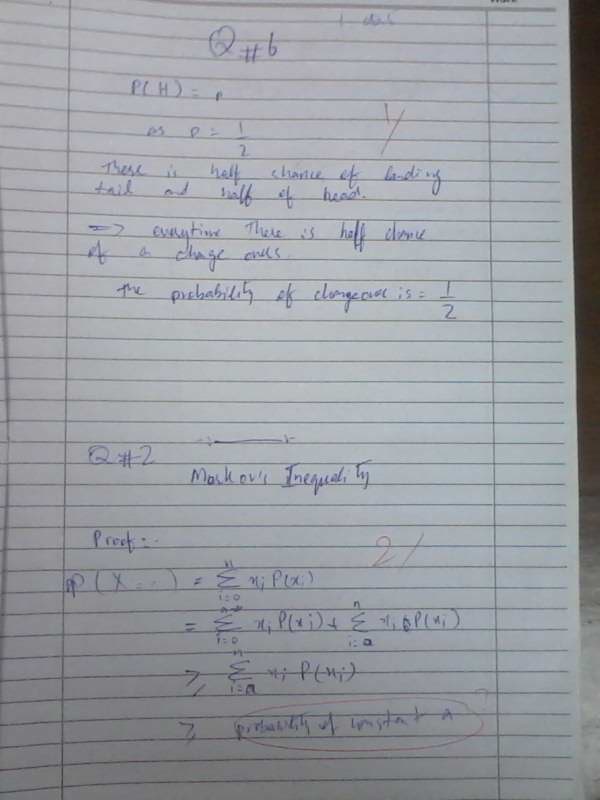 Q#6
P(H) = p
as p = 1/2
There is half chance of landing
tail and half of head.
=> everytime There is half chance
of a change
The probability of changeover is = 1/2
Q#2
Markov's Inequality
Proof:-
2/
P(X = ..) = n∑i=0 xi P(xi)
= ∑i=0 xi P(xi) + n∑i=a xi P(xi)
≥ n∑i=a xi P(xi)
≥ probability of constant a
?